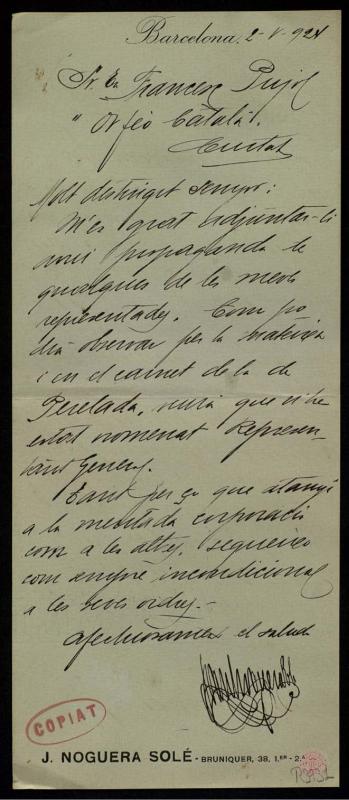 Barcelona, 2-V-924
Sr. En Francesc Pujol
" Orfeó Català.
Ciutat
Molt distingit senyor:
M'es grat adjuntar-li
nova propaganda de
qualques de les meves
representades. Com po
drà observar per la mateixa
i en el carnet de la de
Perelada, veurà que si he
estat nomenat Represen-
tant General.
Tant per ço que atanyi
a la mentada corporació
com a les altres, segueixo
com sempre incondicional
a les seves ordres.-
Afectuosament el saluda
COPIAT
J. NOGUERA SOLÉ - BRUNIQUER, 38, 1.ER - 2.A